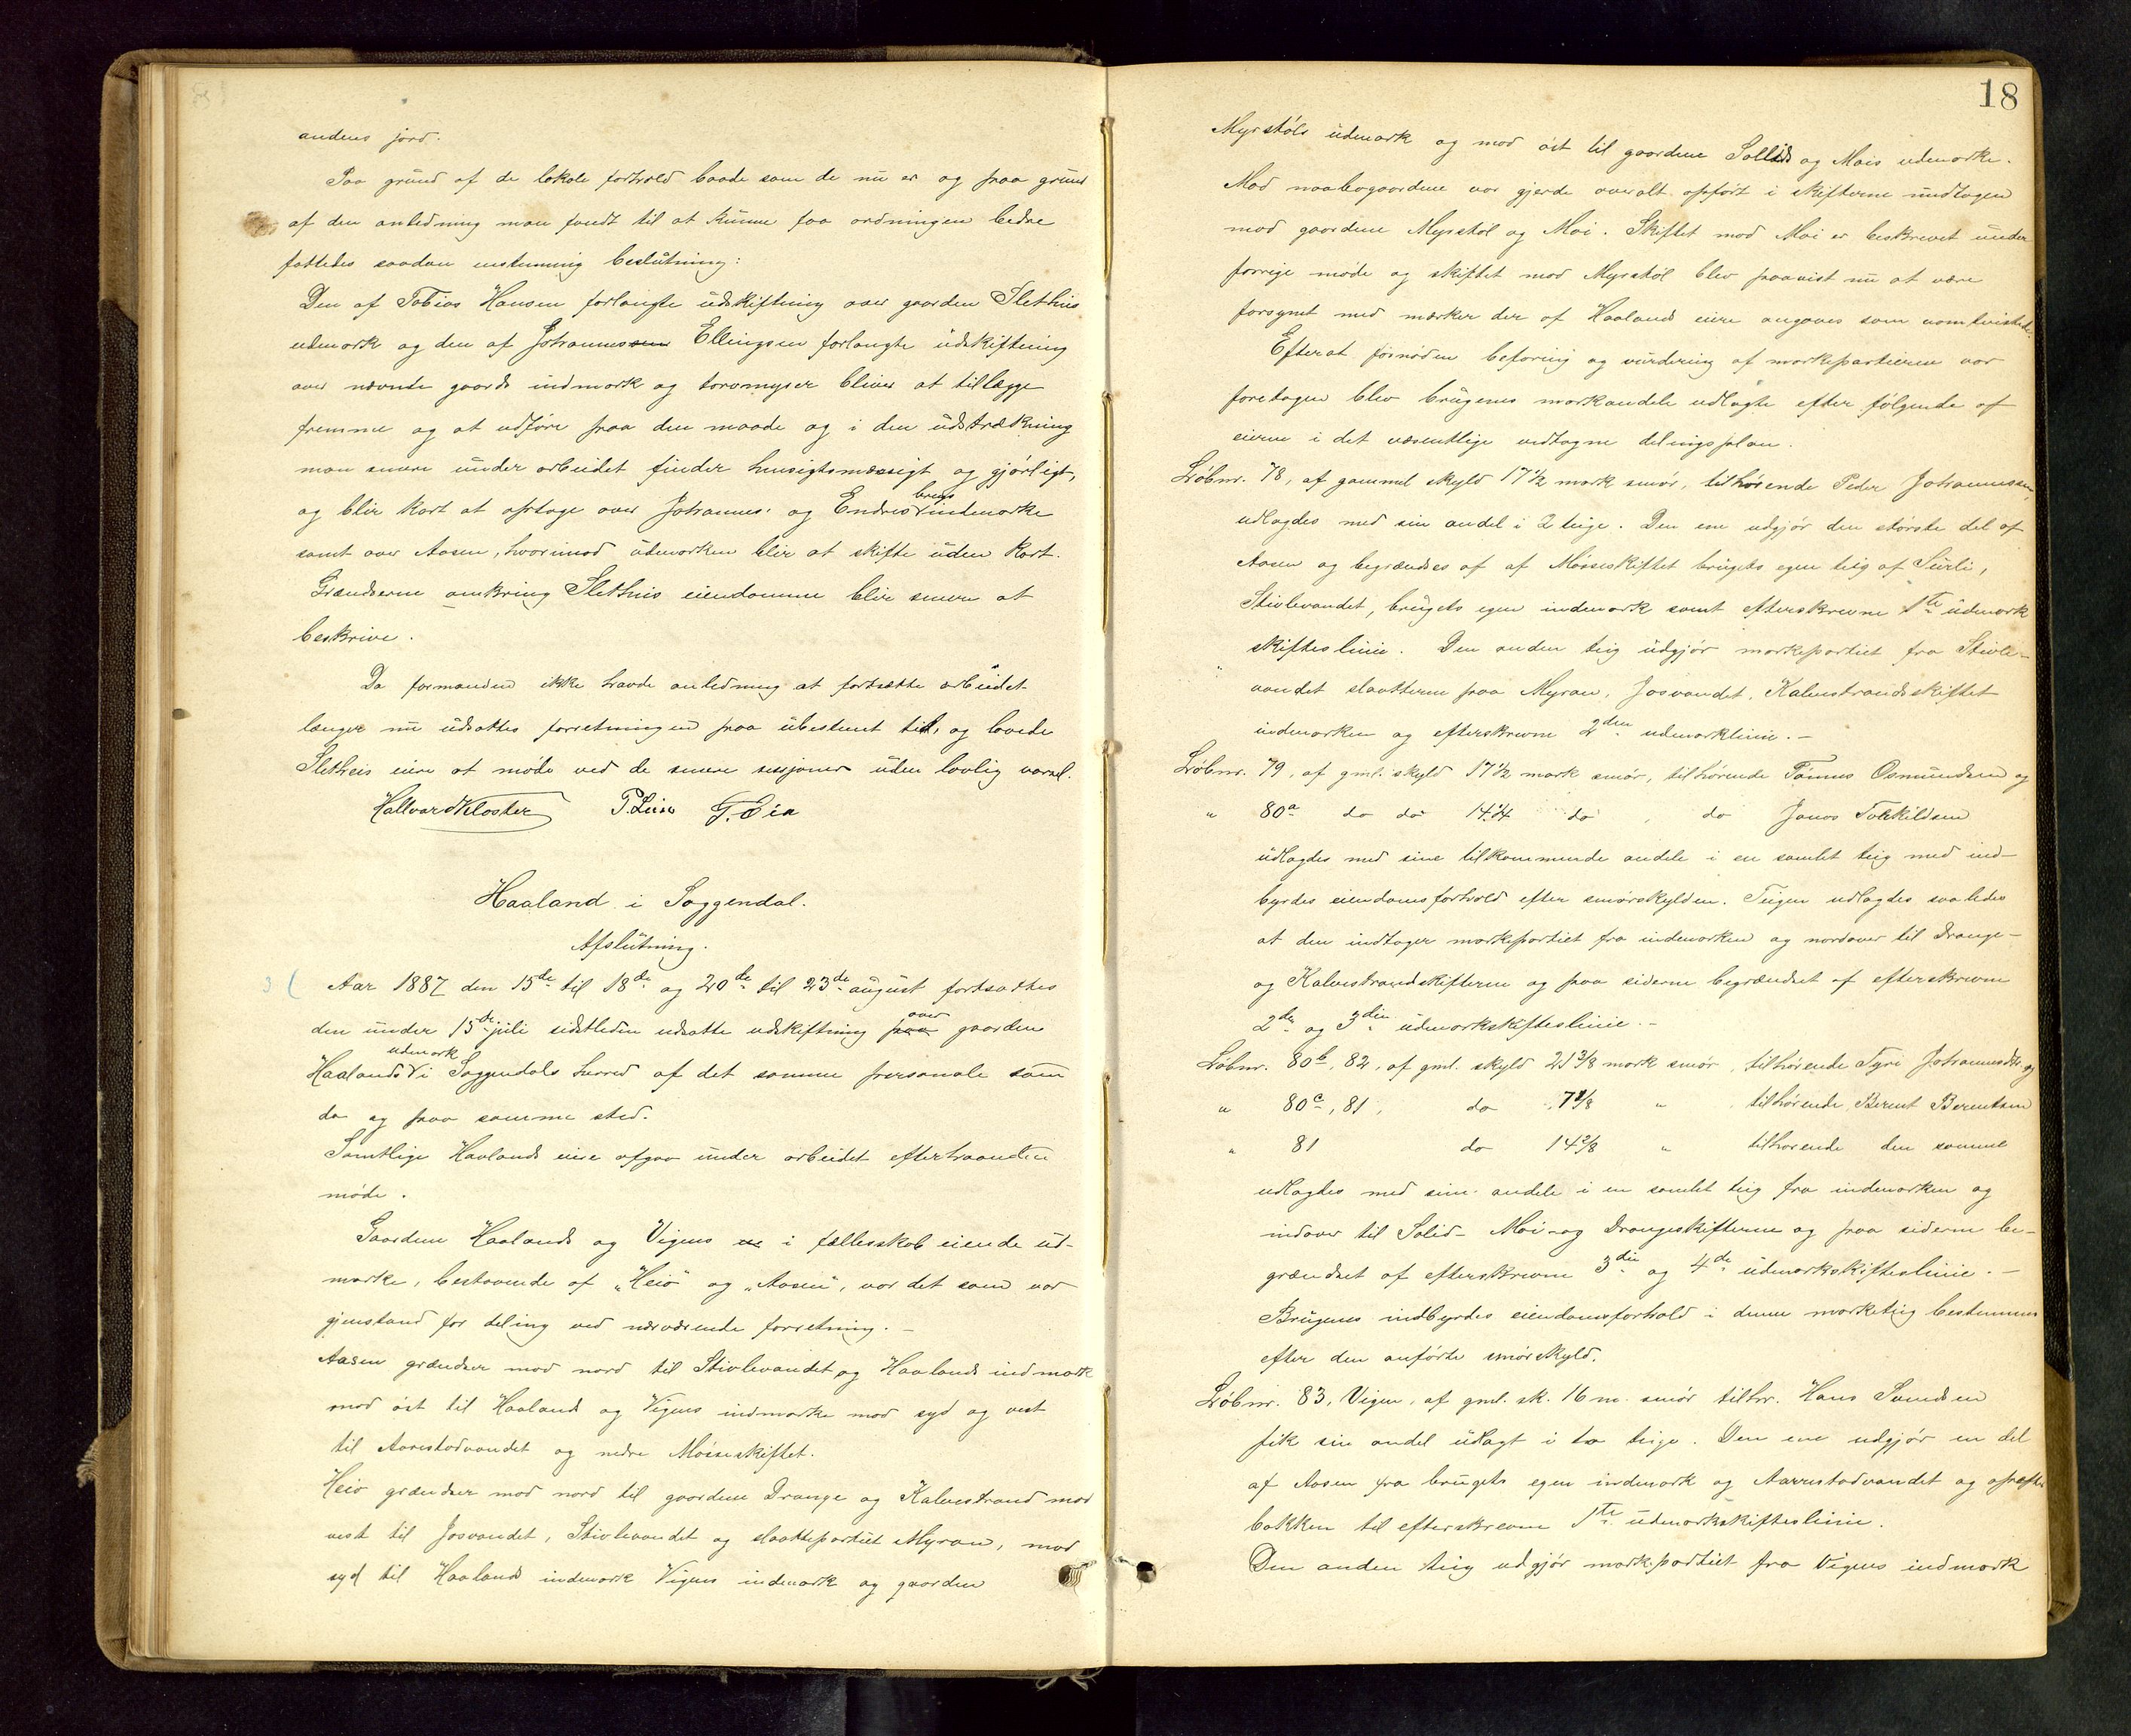 andens jord.
Paa grund af de lokale forhold baade som de nu er og paa grund
af den anledning man fandt til at kunne faa ordningen bedre
fattedes saadan enstemmig beslutning:
Den af Tobias Hansen forlangte udskiftning over gaarden Slethus
udmark og den af Johannes Ellingsen forlangte udskiftning
over nævnte gaards indmark og torvmyrer bliver at tillægge
fremme og at udføre paa den maade og i den udstrækning
man senere under arbeidet finder hensigtsmæssigt og gjørligt,
og blir kart at optage over Johannes' og Endres brugs indmarke
samt over Aasen, hvorimod udmarken blir at skifte uden kart.
Grændserne omkring Slethus eiendomme blir senere at
beskrive.
Da formanden ikke havde anledning at fortsætte arbeidet
længer nu udsattes forretningen paa ubestemt tid, og lovede
Sletheis eiere at møde ved de senere sessjoner uden lovlig varsel.
Hallvard Kloster P. Lien T. Eia
Haaland i Soggendal.
Afslutning.
3 ( Aar 1887 den 15de til 18de og 20de til 23de august fortsattes
den under 15de juli sidstleden udsatte udskiftning paa over gaarden
Haalands udmark i Soggendals herred af det samme personale som
da og paa samme sted.
Samtlige Haalands eiere afgav under arbeidet efterhaanden
møde.
Gaardene Haalands og Vigens er i fællesskab eiende ud-
marke, bestaaende af "Heio" og "Aasen", var det som var
gjenstand for deling ved nærværende forretning.-
Aasen grændser mod nord til Stivlevandet og Haalands indmark
mod øst til Haalands og Vigens indmarke mod syd og vest
til Aarestadvandet og nedre Mosseskiftet.
Heio grændser mod nord til gaardene Drange og Kalvestrand mod
vest til Josvandet, Stivlevandet og slaattepartiet Myran, mod
syd til Haalands indmark Vigens indmark og gaarden
18
Myrstøls udmark og mod øst til gaardene Sollids og Mois udmarke.
Mod naabogaardene var gjerde overalt opført i skifterne undtagen
mod gaardene Myrstøl og Moi. Skiftet mod Moi er beskrevet under
forrige møde og skiftet mod Myrstøl blev paavist nu at være
forsynet med mærker der af Haalands eiere angaves som uomtvistede.
Efterat fornøden befaring og vurdering af markepartierne var
foretagen blev brugenes markandele udlagte efter følgende af
eierne i det væsentlige vedtagne delingsplan.
Løbnr. 78, af gammel skyld 17½ mark smør, tilhørende Peder Johannessen,
udlagdes med sin andel i 2 teige. Den ene udgjør den største del af
Aasen og begrændses af af Mosseskiftet brugets egen teig af Surli,
Stivlevandet, brugets egen indmark samt efterskrevne 1te udmark
skifteslinie. Den anden teig udgjør markepartiet fra Stivle-
vandet slaatterne paa Myran, Josvandet, Kalvestrandsskiftet
indmarken og efterskrevne 2den udmarklinie.-
Løbnr. 79, af gml. skyld 17½ mark smør, tilhørende Tønnes Osmundsen og
" 80a do do 14¼ do , do Jonas Tolkildsen
udlagdes med sine tilkommende andele i en samlet teig med ind-
byrdes eiendomsforhold efter smørskylden. Teigen udlagdes saaledes
at den indtager markepartiet fra indmarken og nordover til Drange-
og Kalvestrandskifterne og paa siderne begrændset af efterskrevne
2den og 3die udmarkskifteslinie.-
Løbnr. 80b, 82, af gml. skyld 21 3/8 mark smør, tilhørende Tyri Johannesdtr. og
" 80c, 81, do 7 1/8 " tilhørende Berent Berentsen
" 81 do 14 2/8 " tilhørende den samme
udlagdes med sine andele i en samlet teig fra indmarken og
indover til Solid- Moi- og Drangeskifterne og paa siderne be-
grændset af efterskrevne 3die og 4de udmarkskifteslinie.-
Brugenes indbyrdes eiendomsforhold i denne marketeig bestemmes
efter den anførte smørskyld.
Løbnr. 83, Vigen, af gml. sk. 16 m. smør tilhr. Hans Svendsen
fik sin andel udlagt i to teige. Den ene udgjør en del
af Aasen fra brugets egen indmark og Aarrestadvandet og opefter
bakken til efterskrevne 1te udmarkskifteslinie.
Den anden teig udgjør markepartiet fra Vigens indmark